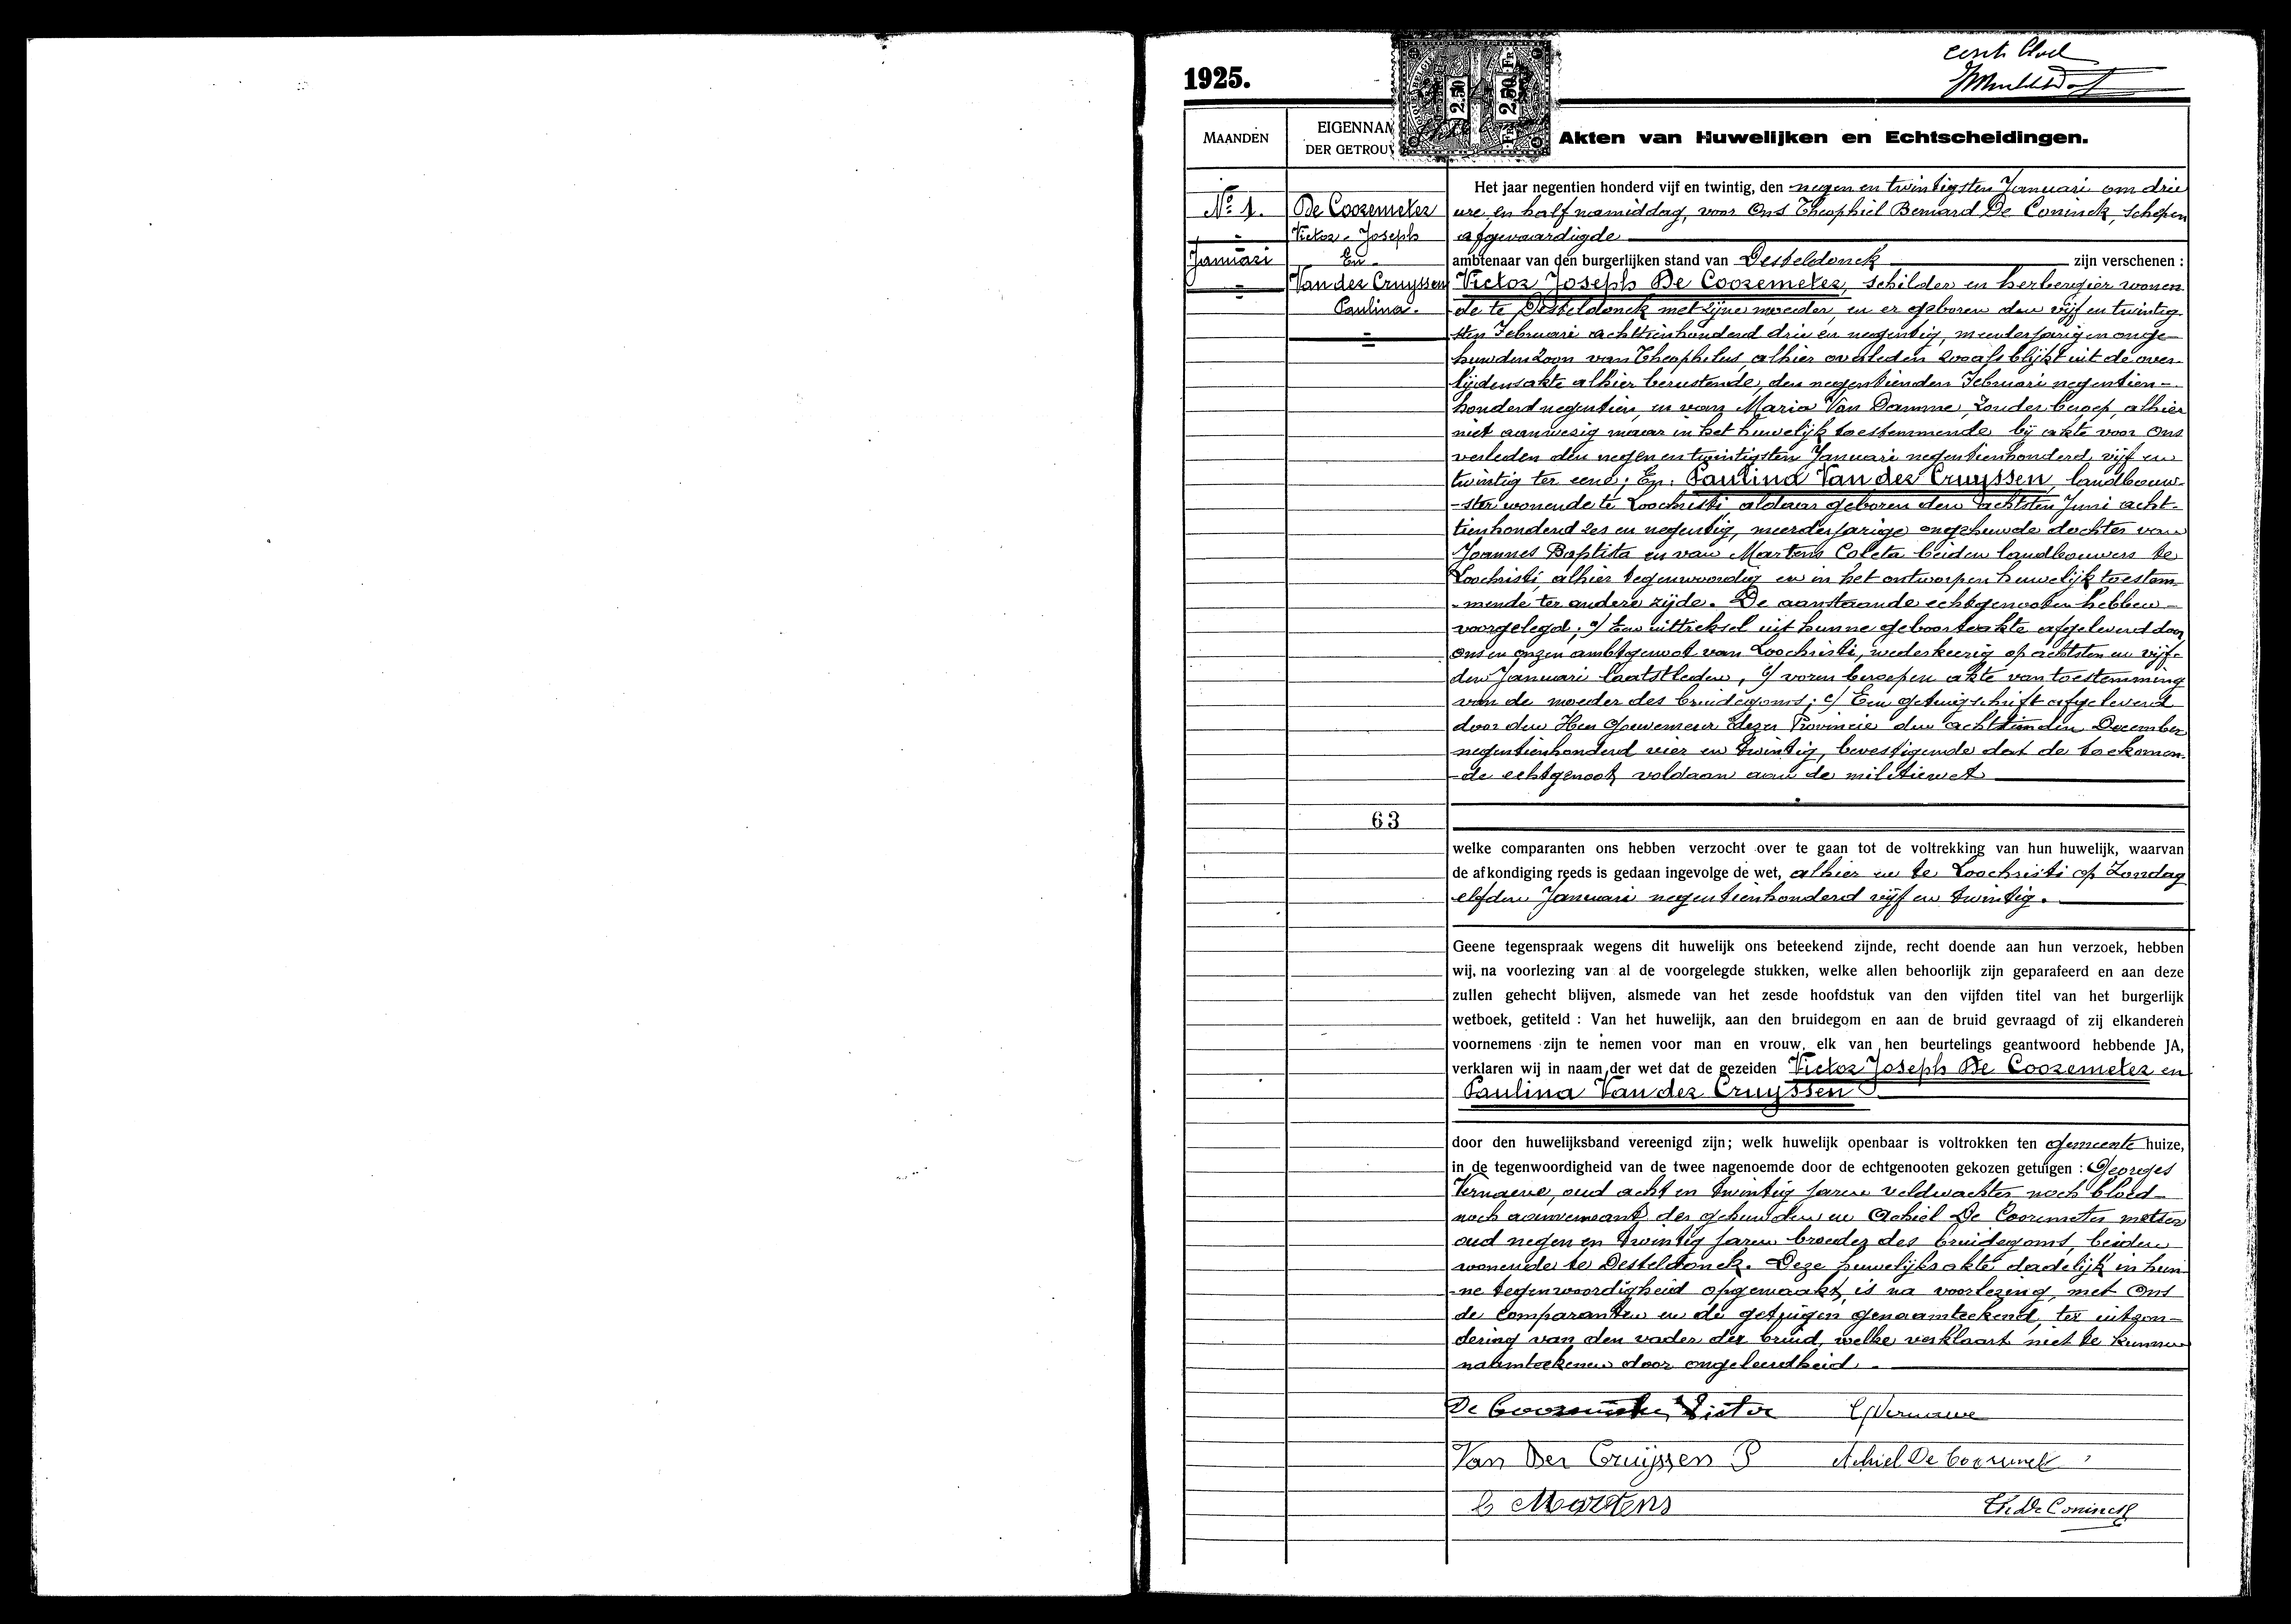 1925.
2.50
Fr. 2.50 Fr.
MAANDEN
EIGENNAM
DER GETROUW
Akten van Huwelijken en Echtscheidingen.
No. 1.
Januari
De Coozemeter
Victor Joseph
En
Van der Cruyssen
Paulina.
63
Het jaar negentien honderd vijf en twintig, den negen en twintigsten Januari om drie
ure en half namiddag, voor Ons Theophiel Bernard De Coninck, schepen
afgevaardigde
ambtenaar van den burgerlijken stand van Desteldonck zijn verschenen :
Victor Joseph De Coozemeter, schilder en herbergier wonen
de te Desteldonck met zijne moeder, en er geboren den vijf en twintig
sten Februari achttienhonderd drie en negentig, meerderjarigen onge-
huwden zoon van Theophilus, alhier overleden zooals blijkt uit de over-
lijdensakte alhier berustende, den negentienden Februari negentien-
honderd negentien, en van Maria Van Damme, zonder beroep, alhier
niet aanwezig maar in het huwelijk toestemmende bij akte voor Ons
verleden den negen en twintigsten Januari negentienhonderd vijf en
twintig ter eene; En. Paulina Van der Cruyssen, landbouw-
-ster wonende te Loochristi, aldaar geboren den achtsten Juni acht-
tienhonderd zes en negentig, meerderjarige ongehuwde dochter van
Joannes Baptista en van Martens Coleta beiden landbouwers te
Loochristi, alhier tegenwoordig en in het ontworpen huwelijk toestem-
-mende ter andere zijde. De aanstaande echtgenooten hebben
voorgelegd: a/ Een uittreksel uit hunne geboorteakte afgeleverd door
ons en onzen ambtgenoot van Loochristi, wederkeerig op achtsten en vijf-
den Januari laatstleden, b/ voren beroepen akte van toestemming
van de moeder des bruidegoms; c/ Een getuigschrift afgeleverd
door den Heer Gouverneur dezer Provincie den achttienden December
negentienhonderd vier en twintig, bevestigende dat de toekomen-
-de echtgenoot voldaan aan de militiewet
welke comparanten ons hebben verzocht over te gaan tot de voltrekking van hun huwelijk, waarvan
de afkondiging reeds is gedaan ingevolge de wet, alhier en te Loochristi op Zondag
elfden Januari negentienhonderd vijf en twintig.
Geene tegenspraak wegens dit huwelijk ons beteekend zijnde, recht doende aan hun verzoek, hebben
wij, na voorlezing van al de voorgelegde stukken, welke allen behoorlijk zijn geparafeerd en aan deze
zullen gehecht blijven, alsmede van het zesde hoofdstuk van den vijfden titel van het burgerlijk
wetboek, getiteld : Van het huwelijk, aan den bruidegom en aan de bruid gevraagd of zij elkanderen
voornemens zijn te nemen voor man en vrouw, elk van hen beurtelings geantwoord hebbende JA,
verklaren wij in naam der wet dat de gezeiden Victor Joseph De Coozemeter en
Paulina Van der Cruyssen
door den huwelijksband vereenigd zijn; welk huwelijk openbaar is voltrokken ten gemeente huize,
in de tegenwoordigheid van de twee nagenoemde door de echtgenooten gekozen getuigen : Georges
Vernaeve, oud acht en twintig jaren veldwachter noch bloed-
noch aanverwant der gehuwden en Achiel De Coozemeter metser
oud negen en twintig jaren broeder des bruidegoms, beiden
wonende te Desteldonck. Deze huwelijksakte, dadelijk in hun-
-ne tegenwoordigheid opgemaakt, is na voorlezing, met Ons
de comparanten en de getuigen genaamteekend, ter uitzon-
dering van den vader der bruid, welke verklaart niet te kunnen
naamteekenen door ongeleerdheid.
De Coozemeter Victor G Vernaeve
Van Der Cruijssen P Achiel De Coozemet
C Martens Th. De Coninck